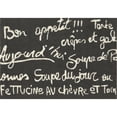 Bon appetit!!! Tarte
crêpes et gale
Aujourd'hui Soupe de Po
onnes Soupe du jour ou
Fettucine au chèvre et Tom